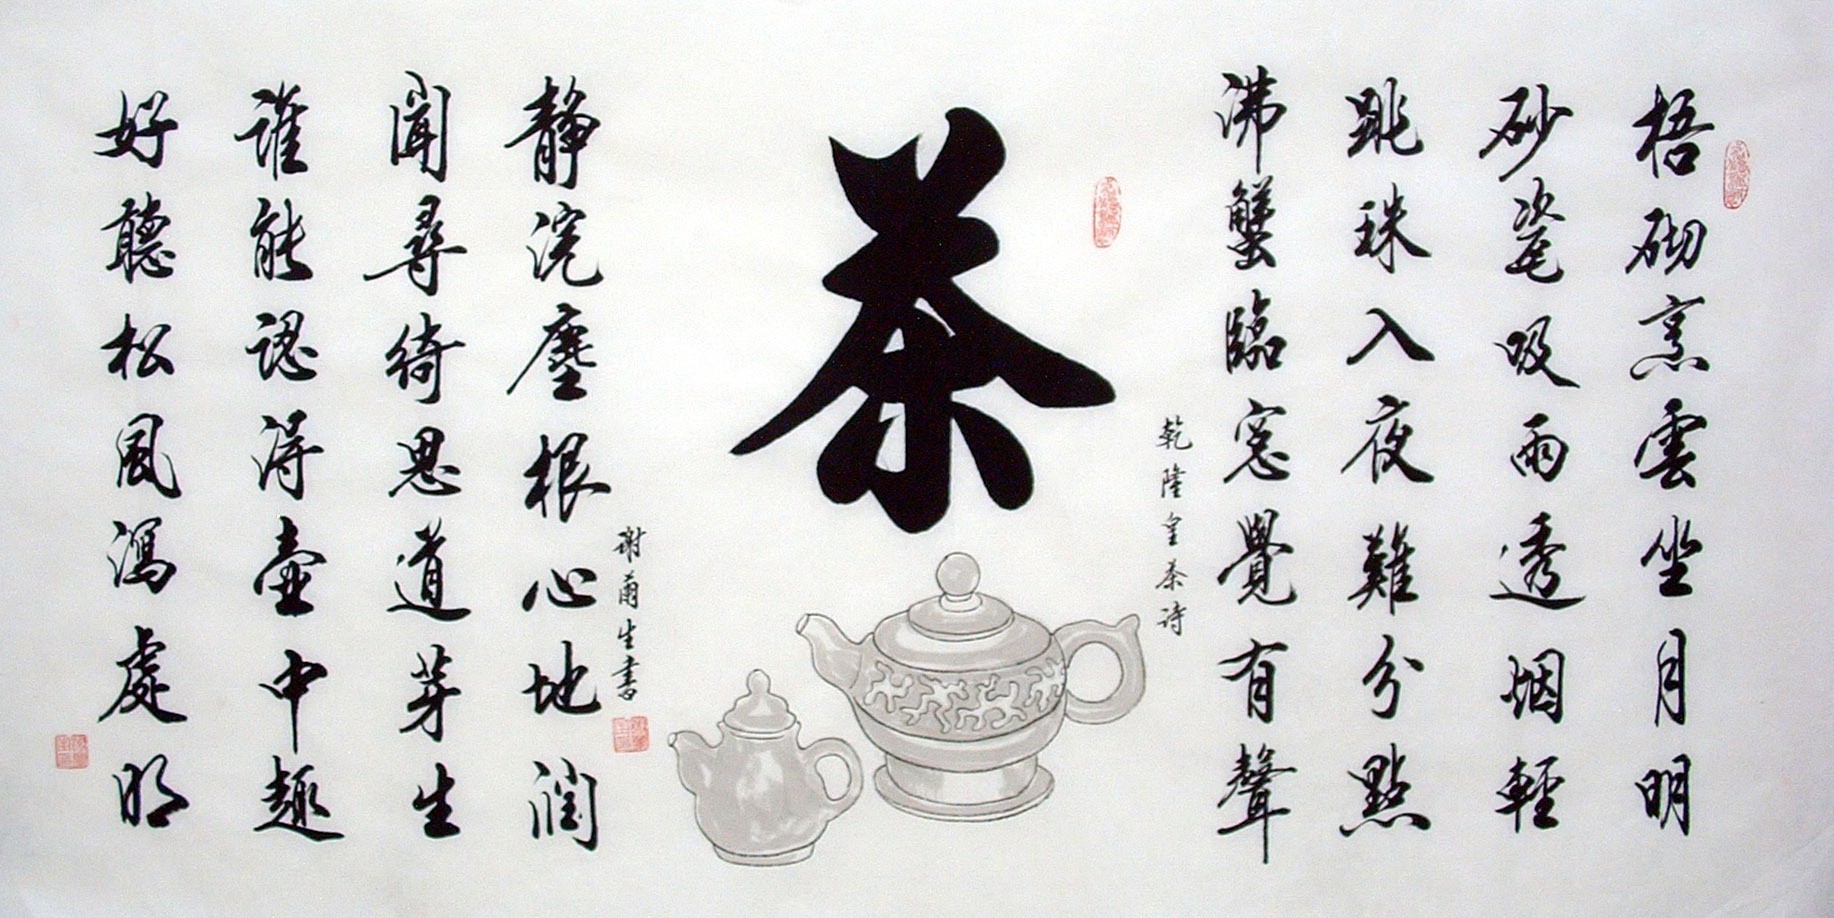 梧砌烹雲坐月明
砂瓷吸雨透烟輕
跳珠入夜難分點
沸蟹臨窓覺有聲
乾隆皇茶诗
茶
谢生書
静浣塵根心地润
聞尋綺思道芽生
谁能認得壺中趣
好聽松風瀉處明